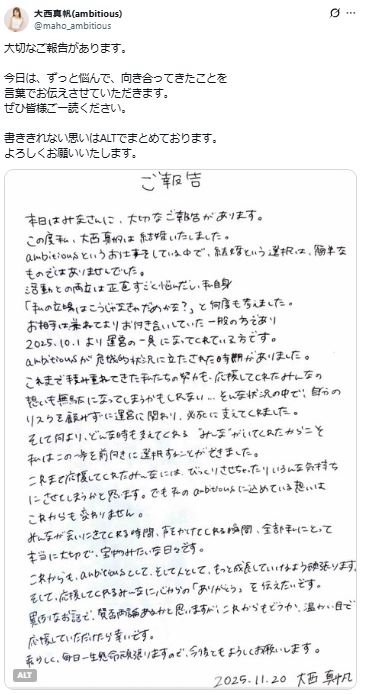 大西真帆(ambitious)
@maho_ambitious
大切なご報告があります。
今日は、ずっと悩んで、向き合ってきたことを
言葉でお伝えさせていただきます。
ぜひ皆様ご一読ください。
書ききれない思いはALTでまとめております。
よろしくお願いいたします。
ご報告
本日はみなさんに、大切なご報告があります。
この度私、大西真帆は結婚いたしました。
ambitiousというお仕事をしている中で、結婚という選択は、簡単な
ものではありませんでした。
活動との両立は正直すごく悩んだし、私自身
「私の立場はこうじゃなきゃだめかな?」と何度も考えました。
お相手は兼ねてよりお付き合いしていた一般の方であり
2025.10.1より運営の一員になってくれている方です。
ambitiousが危機的状況に立たされた時期がありました。
これまで積み重ねてきた私たちの努力も、応援してくれたみんなの
想いも無駄になってしまうかもしれない…そんな状況の中で、自分の
リスクを顧みずに運営に関わり、必死に支えてくれました。
そして何より、どんな時も支えてくれる"みんな"がいてくれたからこそ
私はこの一歩を前向きに選択することができました。
これまで応援してくれたみんなには、びっくりさせちゃったりいろんな気持ち
にさせてしまうかと思います。でも私のambitiousに込めている想いは
これからも変わりません。
みんなが会いにきてくれる時間、声をかけてくれる瞬間、全部私にとって
本当に大切で、宝物みたいな日々です。
これからも、ambitiousとして、そして人として、もっと成長していけるよう頑張ります。
そして、応援してくれるみんなに心からの「ありがとう」を伝えたいです。
異例なお話で、賛否両論あるかと思いますが、これからもどうか、温かい目で
応援していただけたら幸いです。
私らしく、毎日一生懸命頑張りますので、今後ともよろしくお願いします。
2025.11.20 大西 真帆
ALT